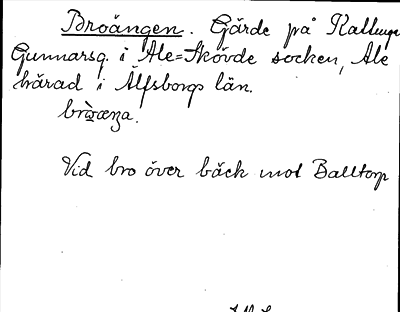 Broängen. Gärde på Kallunge
Gunnarsg. i Ale-Skövde socken, Ale
härad i Älfsborgs län.
Vid bro över bäck mot Balltorp